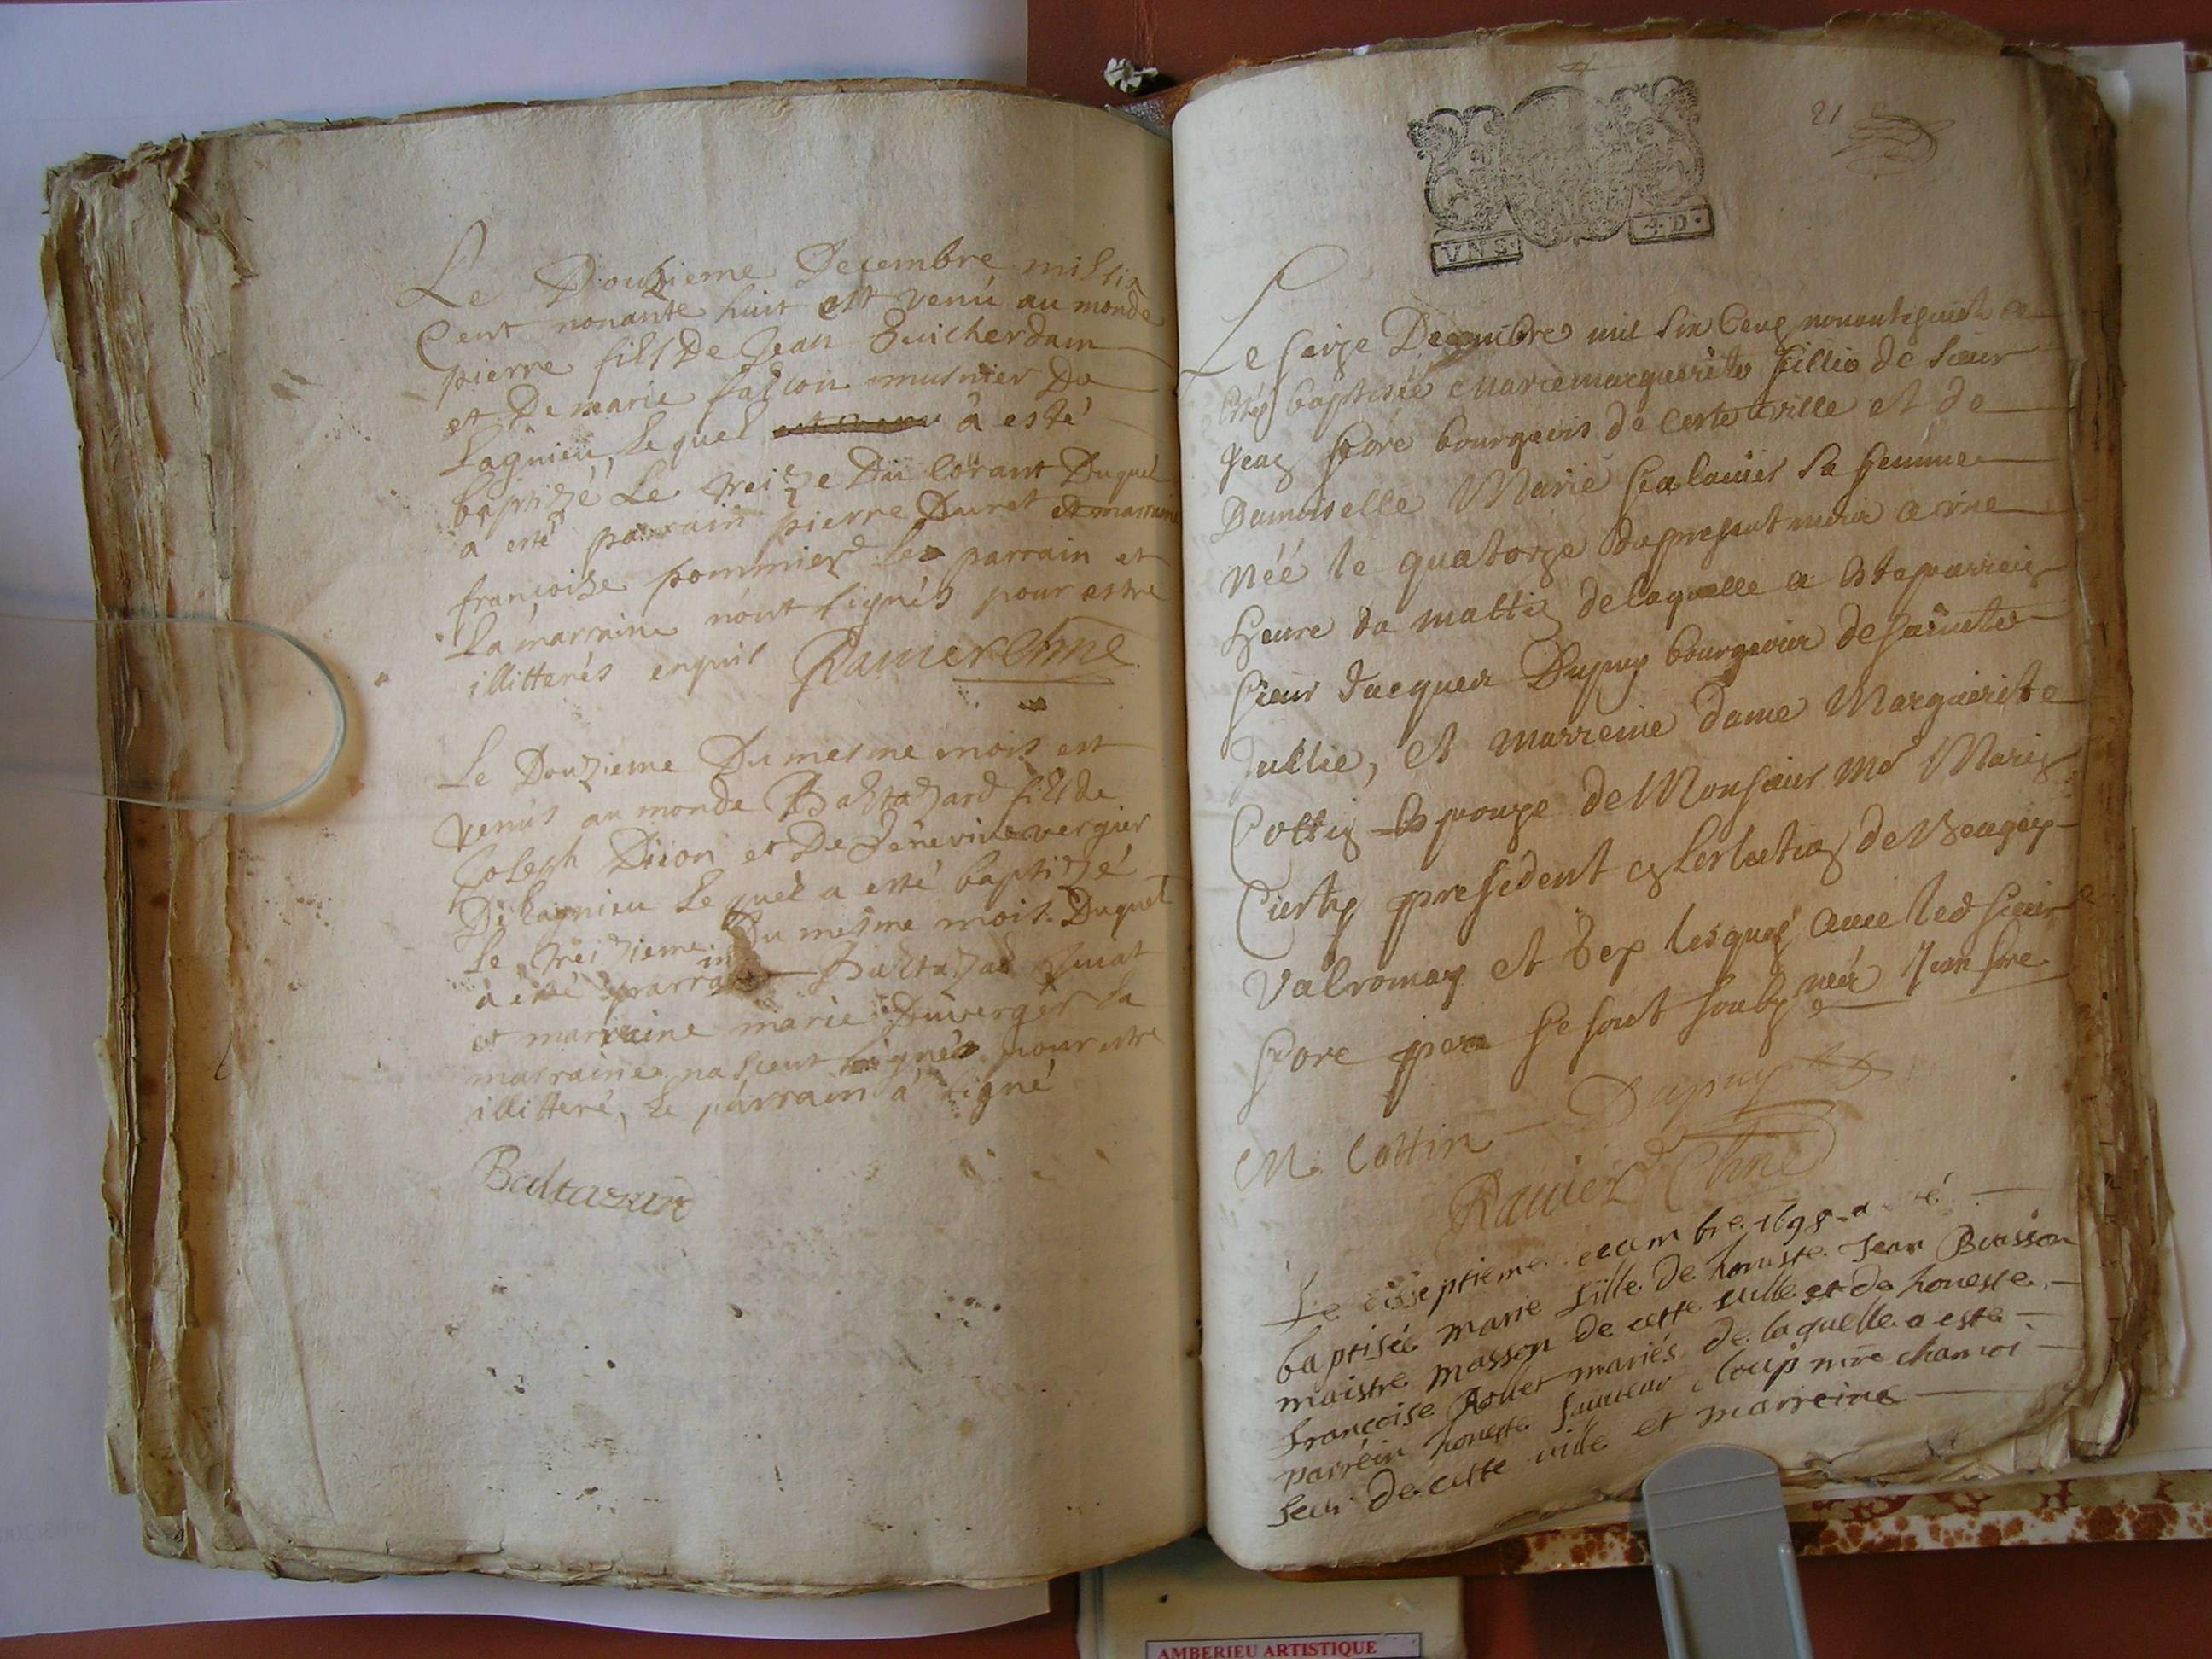 Le Douzieme Decembre mil six
Cent nonante huit est venu au monde
pierre fils De Jean Guicherdam
et De marie falcon musnier De
Lagnieu, Lequel à esté
baptizé Le treize Du Corant Duquel
a esté parrain pierre Duret et marraine
francoise pommier Le parrain et
La marraine nont signés pour estre
illitterés enquis Ravier Chne
Le Douzieme Du mesme mois est
venus au monde Baltazard fils de
Joseph Dijon et De vergier
De Lagnieu Le quel a esté baptizé
Le treizieme Du mesme mois Duquel
a esté parrain Baltazad
et marraine marie Duverger La
marraine signés pour estre
illitteré, Le parrain à signé
Baltazard
21
VNS. 4 D.
Le seize Decembre mil six Cens nonantehuict a
estés baptisée Mariemarguerite fillie de sieur
Jean fore bourgeois de cette ville et de
Damoiselle Marie sa femme
néé le quatorze du present mois a une
heure du mattin de laquelle a este parrein
sieur Jacques Dupuy bourgeois de sainte
Jullie, et marreine dame Marguerite
Cottin espouze de Monsieur Mr Marin
president en leslection de Beugey
Valromay et Gex lesquels avec led sieur
fore pere se sont soubsnés Jean fore
M. Cottin Dupuy
Ravier Chne
Le disseptieme decembre 1698 a esté
baptisée marie fille de honeste Jean Buisson
maistre masson de cette ville et de honeste
francoise mariés de laquelle a este
parréin honeste sauveur loup mre chamoi
seur de cette ville et marreine
AMBERIEU ARTISTIQUE